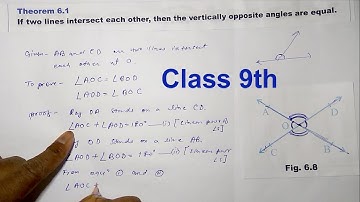 Theorem 6.1
If two lines intersect each other, then the vertically opposite angles are equal.
Given- AB and CD are two lines intersect
each other at O
To prove - ∠AOC = ∠BOD
∠AOD = ∠BOC
proof:- Ray OA stands on a line CD.
∠AOC + ∠AOD = 180° —(i) [Linear pair of ∠s]
Ray OD stands on a line AB.
∠AOD + ∠BOD = 180° —(ii) [Linear pair ∠s]
From eqns ① and ②
∠AOC +
Class 9th
A
D
O
C
B
Fig. 6.8